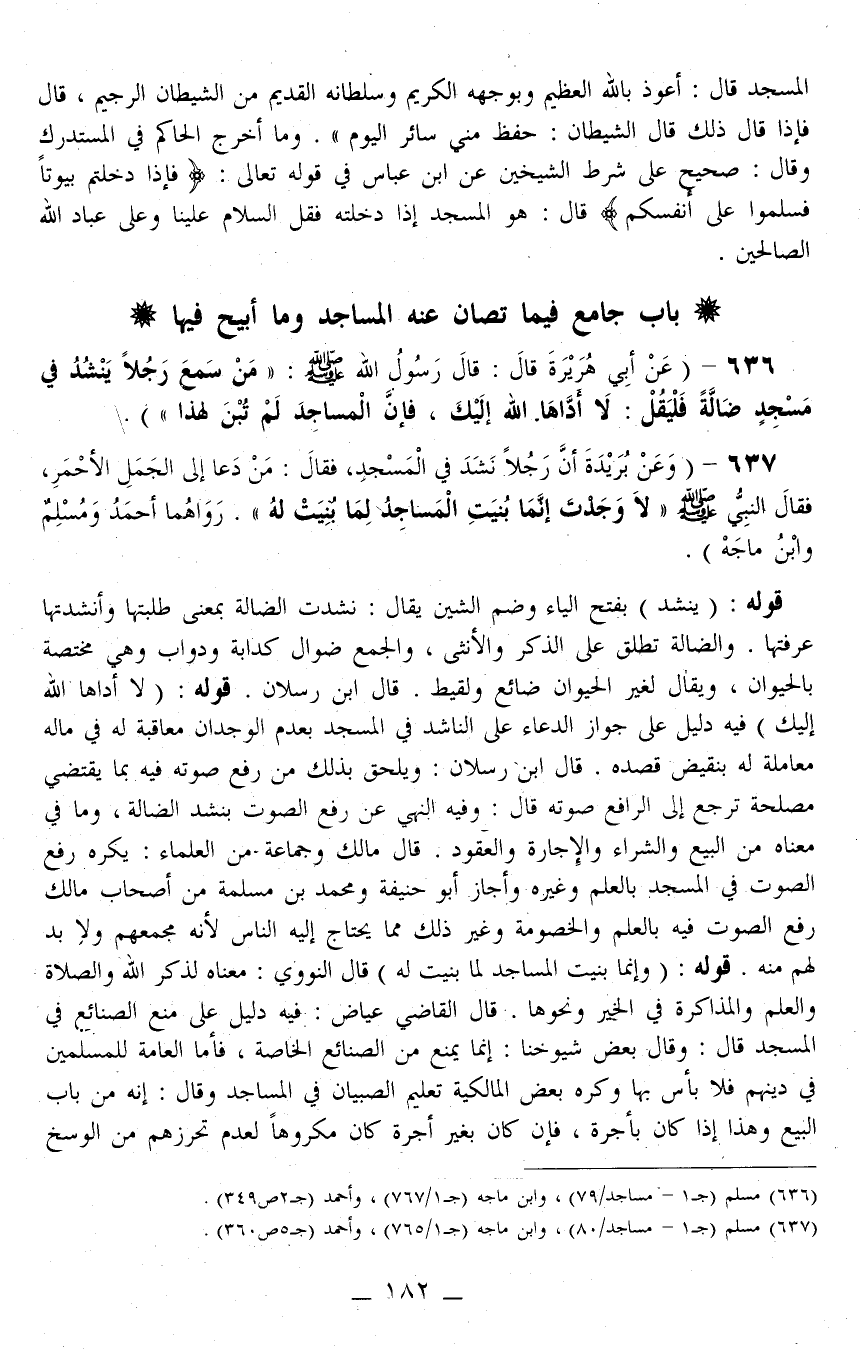 المسجد قال : أعوذ بالله العظيم وبوجهه الكريم وسلطانه القديم من الشيطان الرجيم ، قال
فإذا قال ذلك قال الشيطان : حفظ مني سائر اليوم » . وما أخرج الحاكم في المستدرك
وقال : صحيح على شرط الشيخين عن ابن عباس في قوله تعالى : ﴿ فإذا دخلتم بيوتاً
فسلموا على أنفسكم ﴾ قال : هو المسجد إذا دخلته فقل السلام علينا وعلى عباد الله
الصالحين .
❋ باب جامع فيما تصان عنه المساجد وما أبيح فيها ❋
٦٣٦ – ( عَنْ أبِي هُرَيْرَةَ قالَ : قالَ رَسُولُ الله ﷺ : « مَنْ سَمعَ رَجُلاً يَنْشُدُ في
مَسْجِدٍ ضَالَّةً فَلْيَقُلْ : لَا أَدَّاهَا الله إلَيْكَ ، فإنَّ الْمساجدَ لَمْ تُبْنَ لهذا » ) .
٦٣٧ – ( وَعَنْ بُرَيْدَةَ أنَّ رَجُلاً نَشَدَ في الْمَسْجدِ، فقالَ : مَنْ دَعا إلى الجَمَلِ الأحْمَرِ،
فقالَ النبيُّ ﷺ « لاَ وَجَدْتَ إنَّمَا بُنيَتِ الْمَساجِدُ لِمَا بُنِيَتْ لهُ » . رَوَاهُما أحمَدُ وَمُسْلِمٌ
وابْنُ ماجَهْ ) .
قوله : ( ينشد ) بفتح الياء وضم الشين يقال : نشدت الضالة بمعنى طلبتها وأنشدتها
عرفتها . والضالة تطلق على الذكر والأنثى ، والجمع ضوال كدابة ودواب وهي مختصة
بالحيوان ، ويقال لغير الحيوان ضائع ولقيط . قال ابن رسلان . قوله : ( لا أداها الله
إليك ) فيه دليل على جواز الدعاء على الناشد في المسجد بعدم الوجدان معاقبة له في ماله
معاملة له بنقيض قصده . قال ابن رسلان : ويلحق بذلك من رفع صوته فيه بما يقتضي
مصلحة ترجع إلى الرافع صوته قال : وفيه النهي عن رفع الصوت بنشد الضالة ، وما في
معناه من البيع والشراء والإجارة والعقود . قال مالك وجماعة من العلماء : يكره رفع
الصوت في المسجد بالعلم وغيره وأجاز أبو حنيفة ومحمد بن مسلمة من أصحاب مالك
رفع الصوت فيه بالعلم والخصومة وغير ذلك مما يحتاج إليه الناس لأنه مجمعهم ولا بد
لهم منه . قوله : ( وإنما بنيت المساجد لما بنيت له ) قال النووي : معناه لذكر الله والصلاة
والعلم والمذاكرة في الخير ونحوها . قال القاضي عياض : فيه دليل على منع الصنائع في
المسجد قال : وقال بعض شيوخنا : إنما يمنع من الصنائع الخاصة ، فأما العامة للمسلمين
في دينهم فلا بأس بها وكره بعض المالكية تعليم الصبيان في المساجد وقال : إنه من باب
البيع وهذا إذا كان بأجرة ، فإن كان بغير أجرة كان مكروهاً لعدم تحرزهم من الوسخ
(٦٣٦) مسلم (جـ١ – مساجد/٧٩) ، وابن ماجه (جـ٧٦٧/١) ، وأحمد (جـ٢ص٣٤٩) .
(٦٣٧) مسلم (جـ١ – مساجد/٨٠) ، وابن ماجه (جـ٧٦٥/١) ، وأحمد (جـ٥ص٣٦٠) .
ــ ١٨٢ ــ